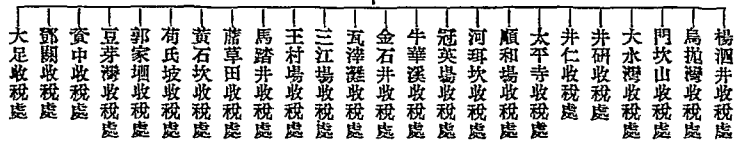 楊泗井收稅處
烏抛灣收稅處
門坎山收稅處
大水灣收稅處
井研收稅處
井仁收稅處
太平寺收稅處
順和場收稅處
河珥坎收稅處
冠英場收稅處
牛華溪收稅處
金石井收稅處
瓦滓灘收稅處
三江場收稅處
王村場收稅處
馬踏井收稅處
蓆草田收稅處
黃石坎收稅處
荀氏坡收稅處
郭家堌收稅處
豆芽灣收稅處
資中收稅處
鄧關收稅處
大足收稅處